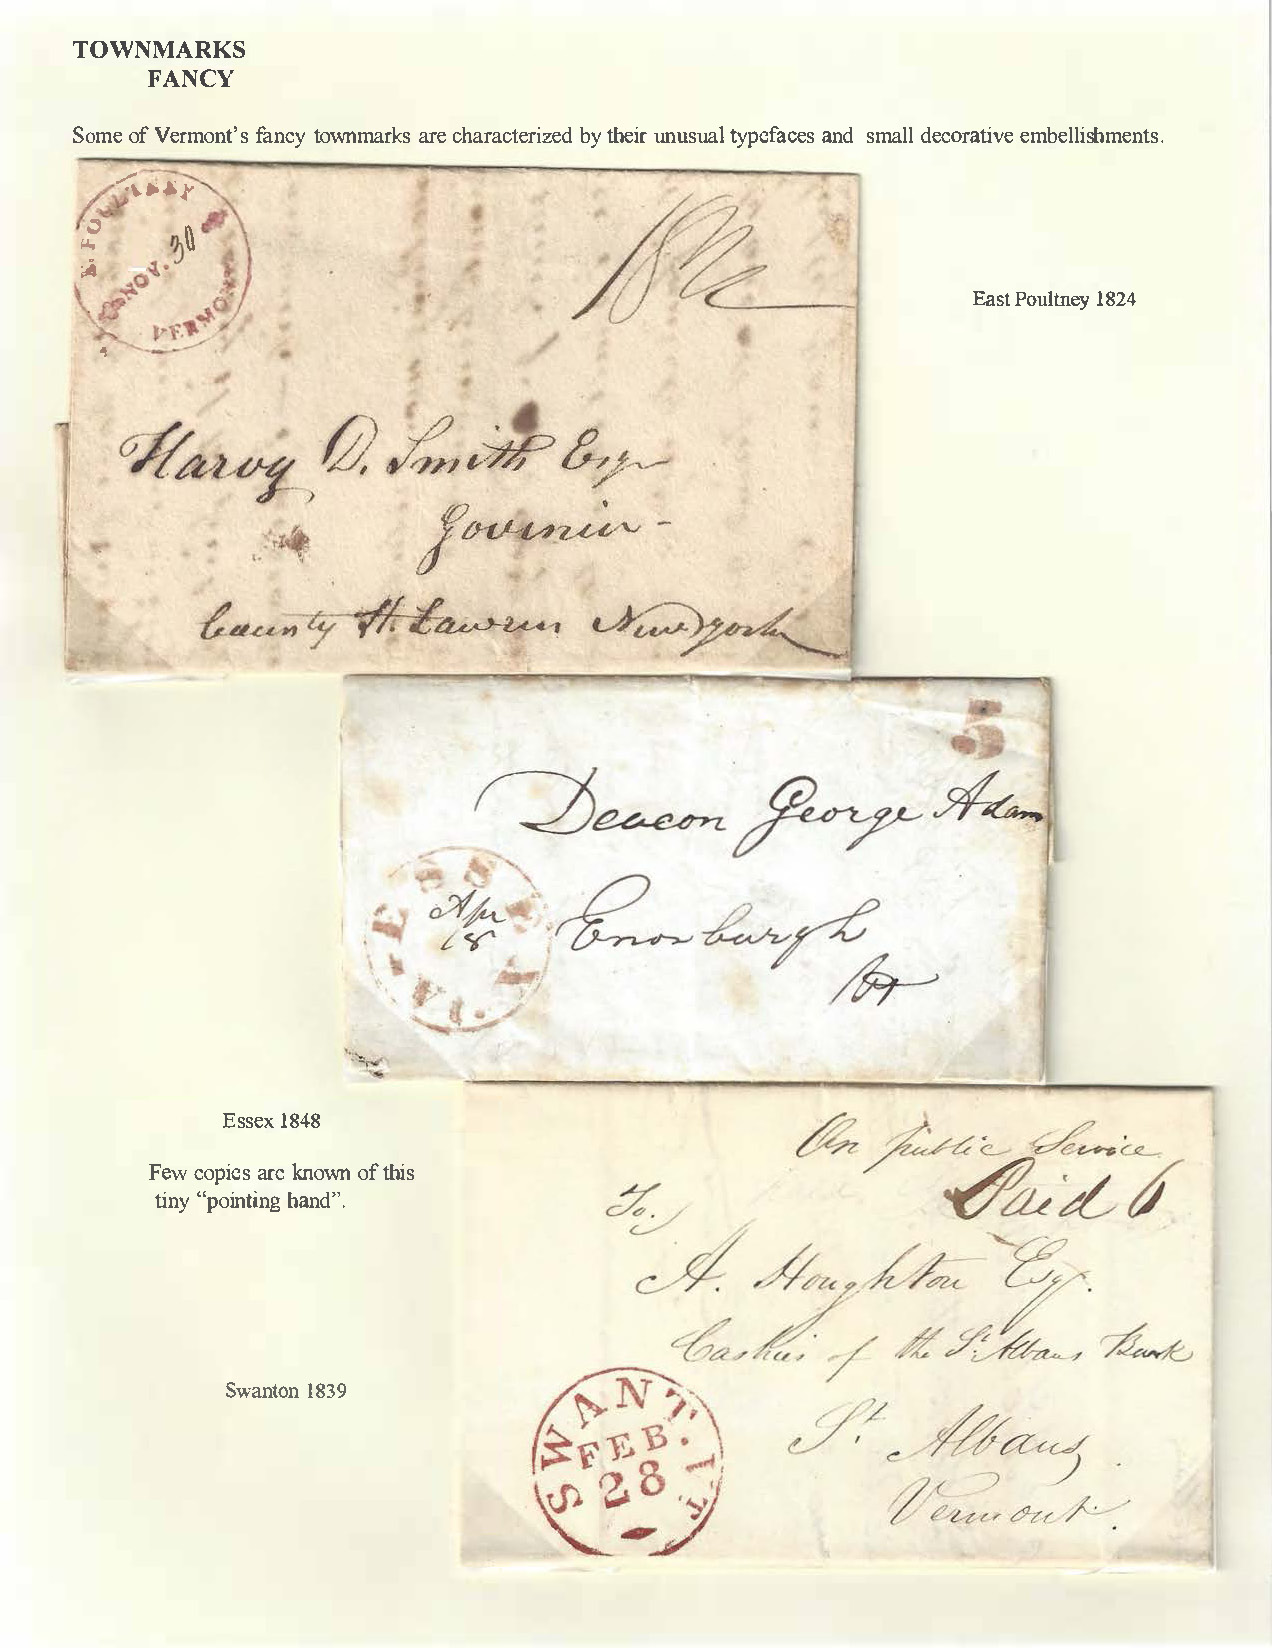 TOWNMARKS
FANCY
Some of Vermont's fancy townmarks are characterized by their unusual typefaces and small decorative embellishments.
E. POULTNEY
NOV. 30
VERMONT
18¾
East Poultney 1824
Harvy D. Smith Esqr
Goviniur -
County St. Lawren Newyork
5
Deacon George Adam
ESSEX
Apr
18
Enosburgh
Vt
Essex 1848
Few copies are known of this
tiny "pointing hand".
On public Service
Paid 6
To.
A. Houghton Esqr.
Cashier of the St. Albans Bank
Swanton 1839
SWANT. VT.
FEB.
28
St. Albans,
Vermont.